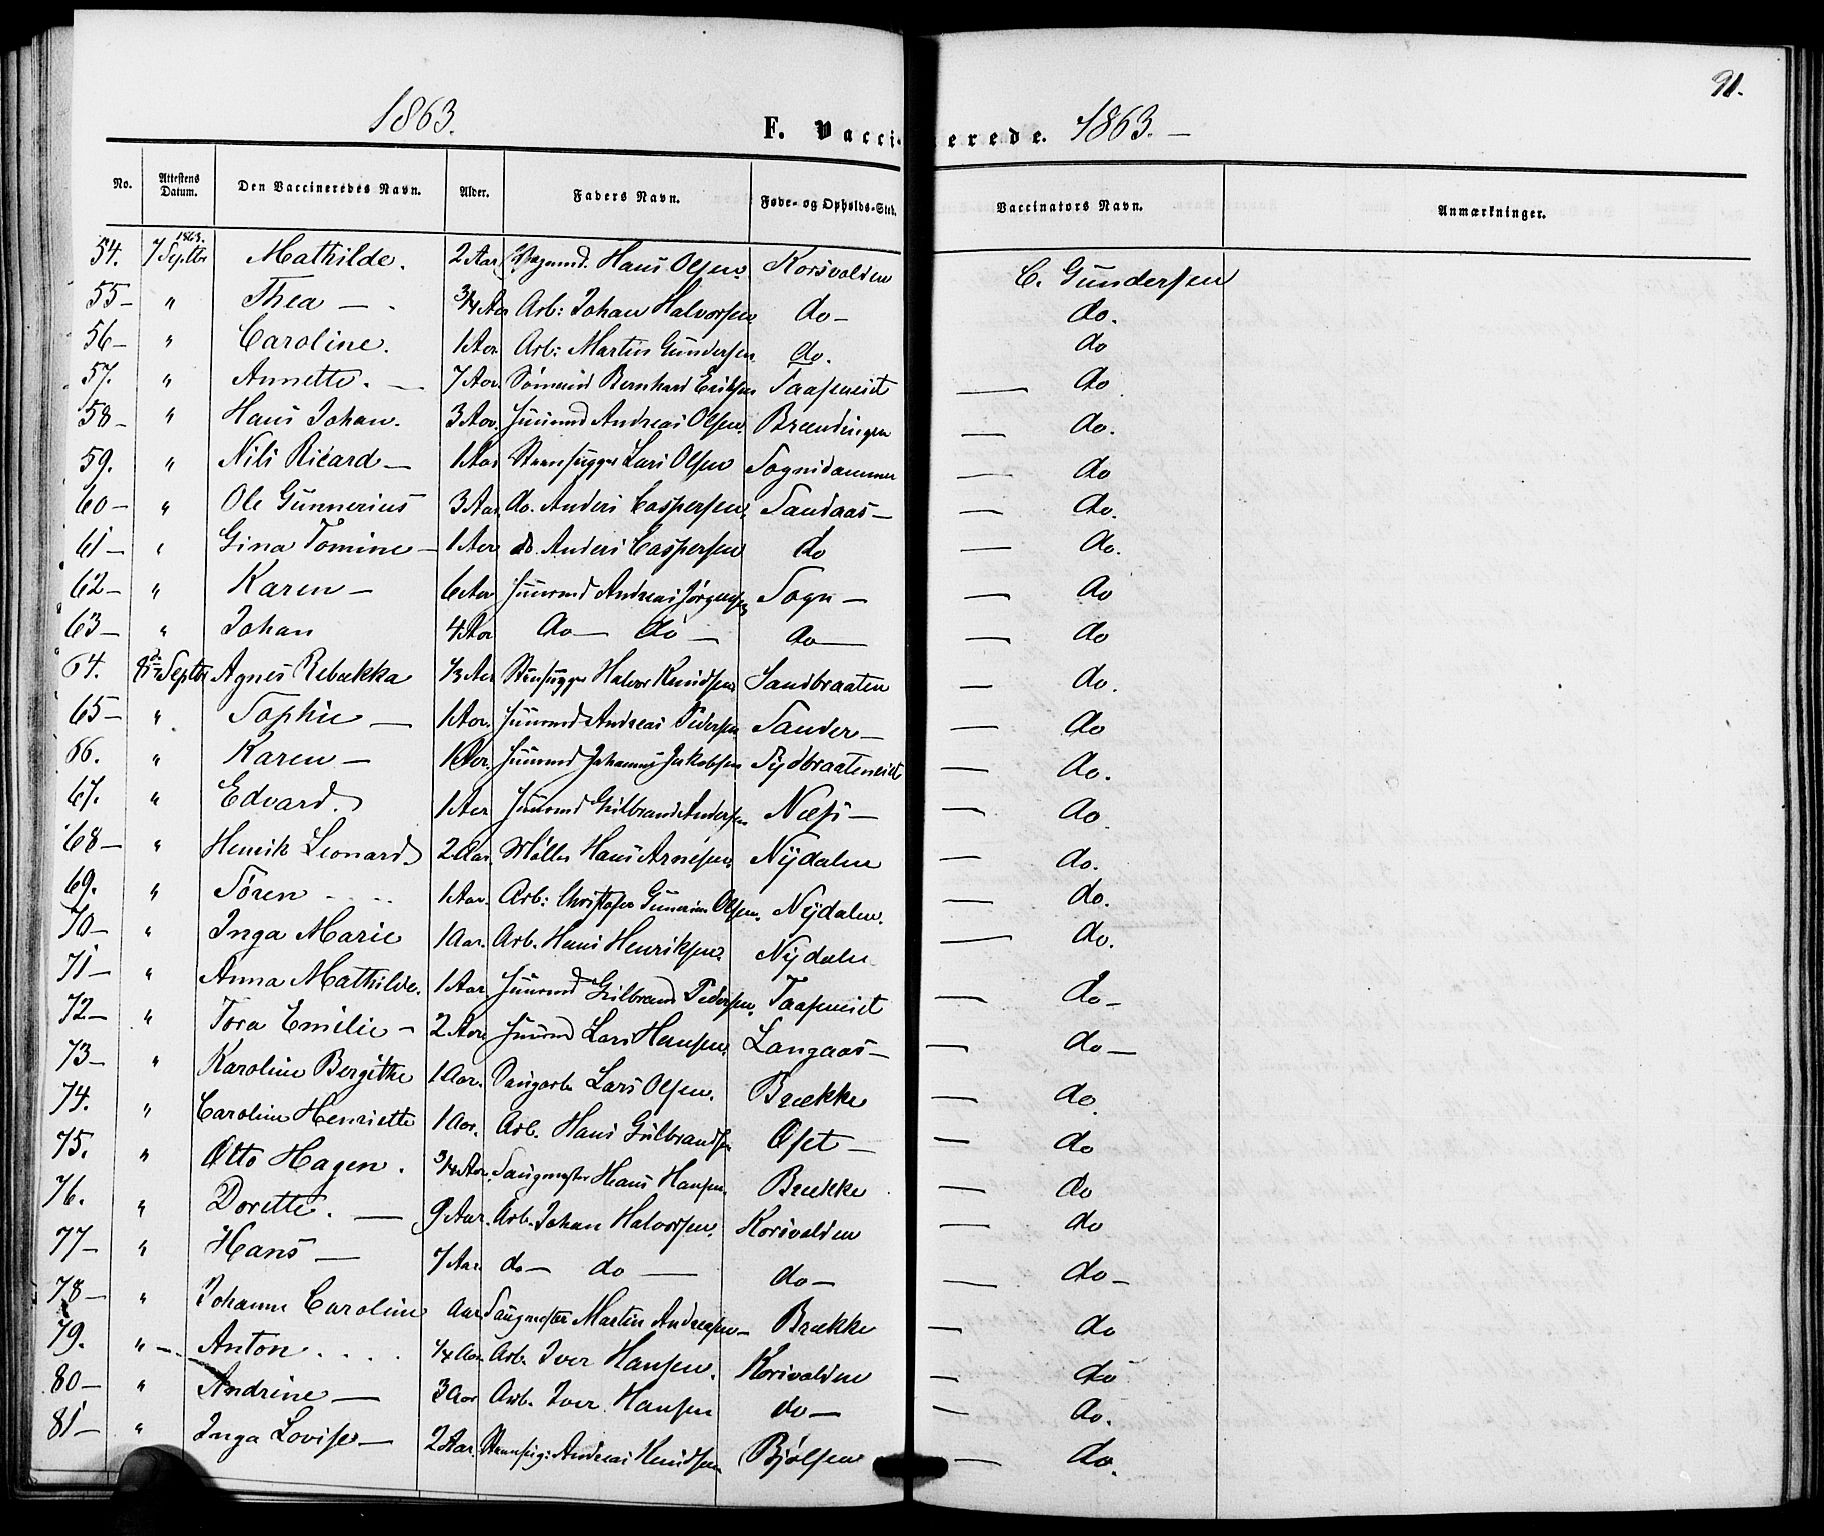 91.
1863.
F. Vacci- nerede. 1863. —
No. Attestens Datum. Den Vaccineredes Navn. Alder. Faders Navn. Føde- og Opholds-Sted. Vaccinators Navn. Anmærkninger.
1863.
54. 7 Septbr Mathilde. 2 Aar Hans Olsen. Korsvolden C. Gundersen
55 — " Thea — 3/4 Aar Arb: Johan Halvorsen do — do.
56 — " Caroline. 1 Aar Arb: Martin Gundersen. do. do
57. " Annette. — 7 Aar. Bernhard Eriksen Taaseneiet — do
58 — " Hans Johan. 3 Aar. Huusmd Andreas Olsen. Brændingen — do.
59. " Nils Ricard — 1 Aar Steenhugger Lars Olsen Sognsdammen — do
60 — " Ole Gunnerius 3 Aar. do. Anders Caspersen. Sandaas — — do.
61 — " Gina Tomine — 1 Aar do. Anders Caspersen do — do.
62 — " Karen — 6 Aar Huusmd Andreas Jörgensen Sogn — — do
63 — " Johan 4 Aar do — do — do — — do
64. Septbr Agnes Rebækka 1/3 Aar Stenhugger Halvor Knudsen Sandbraaten — do.
65 — " Sophie — 1 Aar. Huusmd Andreas Pedersen Sander — — do
66. " Karen — 1 Aar. Huusmd Johannes Jakobsen Nydbraateneiet — do.
67. " Edvard. 1 Aar Huusmd Gulbrand Andersen Næss — — do.
68 — " Henrik Leonard 2 Aar. Møller Hans Arnesen. Nÿdalen — do.
69. " Sören 1 Aar. Arb: Christofer Gunerius Olsen. Nÿdalen. — do.
70 — " Inga Marie 1 Aar. Arb. Hans Henriksen. Nÿdalen — do.
71 — " Anna Mathilde. 1 Aar Huusmd Gulbrand Pedersen. Taaseneiet — do —
72 — " Tora Emilie — 2 Aar Huusmd Lars Hansen. Langaas — — do —
73 — " Karoline Bergithe 1 Aar. Saugarb. Lars Olsen. Brække — do.
74. " Caroline Henriette 1 Aar. Arb. Hans Gulbrandsen Øset — — do
75. " Otto Hagen. 3/4 Aar. Saugmester Hans Hansen. Brække — do
76. " Dorette. — 9 Aar. Arb. Johan Halvorsen. Korsvolden — do
77 — " Hans — 7 Aar do — do — do — — do —
78 — " Johanne Caroline Aar Saugmester Martin Andreasen — Brække — do
79. " — Anton 1/4 Aar. Arb. Iver Hansen. Korsvolden — do
80 — " Andrine — 3 Aar Arb. Iver Hansen do — — do.
81 — " Inga Lovise — 2 Aar. Steenhug: Andreas Knudsen Bjølsen — do.